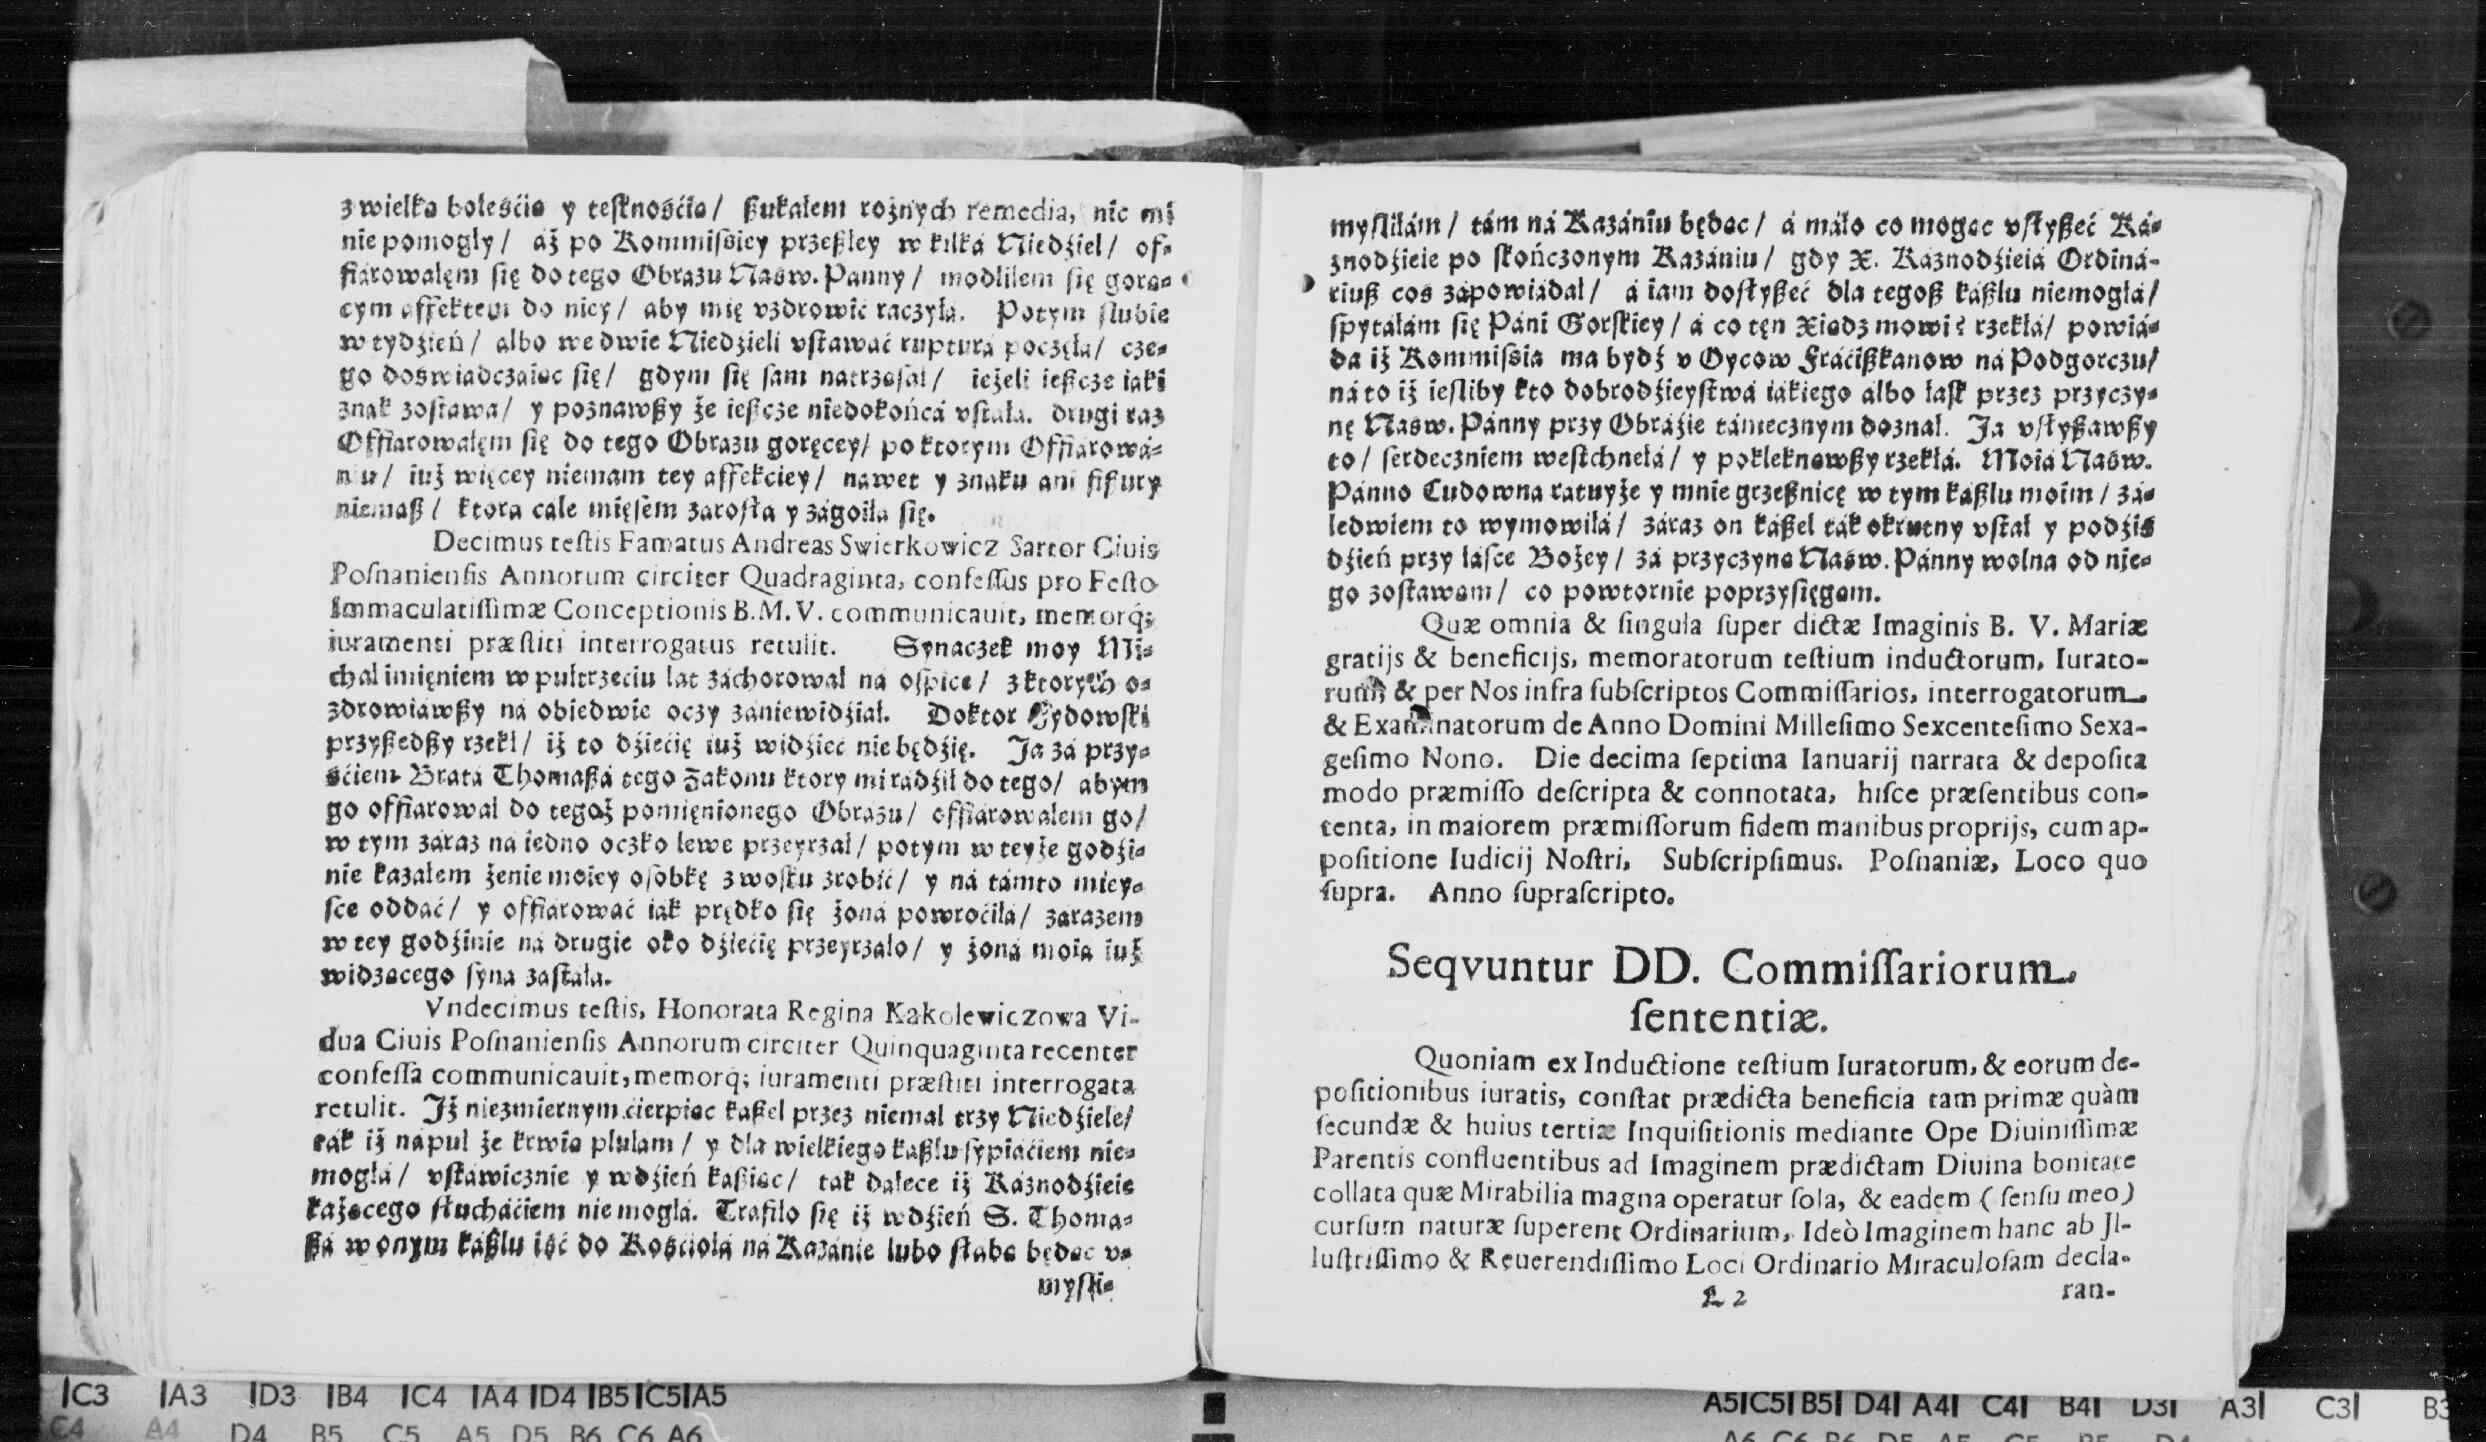 z wielką boleśćią y teſknośćią/ ßukałem rożnych remedia, nic mi
nie pomogły/ áż po Kommiſsiey przeßłey w kilká Niedźiel/ of-
fiárowałęm ſię do tego Obrazu Naśw. Pánny/ modliłem ſię gorą-
cym affektem do niey/ áby mię vzdrowić raczyłá. Potym ſlubie
w tydźień/ álbo we dwie Niedźieli vſtáwáć rupturá poczęłá/ cze-
go doświadczáiąc ſię/ gdym ſię ſam nátrząſał/ ieżeli ießcze iáki
znák zoſtawa/ y poznawßy że ießcze niedokońcá vſtáłá. drugi raz
Offiárowałęm ſię do tego Obrazu goręcey/ po ktorym Offiárowá-
niu/ iuż więcey niemam tey affekciey/ náwet y znáku áni fißury
niemáß/ ktora cále mięſem zároſłá y zágoiłá ſię.
Decimus teſtis Famatus Andreas Swierkowicz Sartor Ciuis
Poſnanienſis Annorum circiter Quadraginta, confeſſus pro Feſto
Immaculatiſſimæ Conceptionis B.M.V. communicauit, memorq;
iuramenti præſtiti interrogatus retulit. Synaczek moy Mi-
chał imięniem w pułtrzeciu lat záchorował ná oſpice/ z ktorych o-
zdrowiawßy ná obiedwie oczy zániewidźiał. Doktor Żydowſki
przyßedßy rzekł/ iż to dźiećię iuż widźieć nie będźię. Ja zá przy-
śćiem Brátá Thomaßá tego Zakonu ktory mi rádźił do tego/ ábym
go offiárował do tegoż pomięnionego Obrazu/ offiárowałem go/
w tym záraz ná iedno oczko lewe przeyrzał/ potym w teyże godźi-
nie kazałem żenie moiey oſobkę z woſku zrobić/ y ná támto miey-
ſce oddáć/ y offiárowáć iák prędko ſię żoná powroćiłá/ zárazem
w tey godźinie ná drugie oko dźiećię przeyrzáło/ y żoná moiá iuż
widzącego ſyná záſtáłá.
Vndecimus teſtis, Honorata Regina Kakolewiczowa Vi-
dua Ciuis Poſnanienſis Annorum circiter Quinquaginta recenter
confeſſa communicauit, memorq; iuramenti præſtiti interrogata
retulit. Iż niezmiernym ćierpiąc káßel przez niemal trzy Niedźiele/
ták iż nápuł że krwią plułam/ y dla wielkiego káßlu ſypiáćiem nie-
mogłá/ vſtáwicznie y wdźień káßląc/ ták dálece iż Káznodźieię
każącego ſłucháćiem nie mogłá. Tráfiło ſię iż wdźień S. Thomá-
ßá w onym káßlu iść do Kośćiołá ná Kazánie lubo ſłábą będąc v-
myſli-
myſliłám/ tám ná Kazániu będąc/ á máło co mogąc vſłyßeć Ká-
znodźieie po ſkończonym Kazániu/ gdy X. Káznodźieiá Ordiná-
riuß coś zápowiádał/ á iam doſłyßeć dla tegoß káßlu niemogłá/
ſpytáłám ſię Páni Gorſkiey/ á co tęn Xiądz mowi? rzekłá/ powiá-
da iż Kommiſsia ma bydź v Oycow Fráćißkanow ná Podgorczu/
ná to iż ieſliby kto dobrodźieyſtwá iákiego álbo łáſk przez przyczy-
nę Naśw. Pánny przy Obráźie támecznym doznał. Ja vſłyßawßy
to/ ſerdeczniem weſtchnęłá/ y poklęknąwßy rzekłá. Moiá Naśw.
Pánno Cudowna rátuyże y mnie grzeßnicę w tym káßlu moim/ zá-
ledwiem to wymowiłá/ záraz on káßel ták okrutny vſtał y podźiś
dźień przy łáſce Bożey/ zá przyczyną Naśw. Pánny wolna od nie-
go zoſtawam/ co powtornie poprzyſięgam.
Quæ omnia & ſingula ſuper dictæ Imaginis B. V. Mariæ
gratijs & beneficijs, memoratorum teſtium inductorum, Iurato-
rum, & per Nos infra ſubſcriptos Commiſſarios, interrogatorum
& Examinatorum de Anno Domini Milleſimo Sexcenteſimo Sexa-
geſimo Nono. Die decima ſeptima Ianuarij narrata & depoſita
modo præmiſſo deſcripta & connotata, hiſce præſentibus con-
tenta, in maiorem præmiſſorum fidem manibus proprijs, cum ap-
poſitione Iudicij Noſtri, Subſcripſimus. Poſnaniæ, Loco quo
ſupra. Anno ſupraſcripto.
Seqvuntur DD. Commiſſariorum
ſententiæ.
Quoniam ex Inductione teſtium Iuratorum, & eorum de-
poſitionibus iuratis, conſtat prædicta beneficia tam primæ quàm
ſecundæ & huius tertiæ Inquiſitionis mediante Ope Diuiniſſimæ
Parentis confluentibus ad Imaginem prædictam Diuina bonitate
collata quæ Mirabilia magna operatur ſola, & eadem (ſenſu meo)
curſum naturæ ſuperent Ordinarium, Ideò Imaginem hanc ab Il-
luſtriſſimo & Reuerendiſſimo Loci Ordinario Miraculoſam decla-
L 2 ran-
C3 A3 D3 B4 C4 A4 D4 B5 C5 A5
C4 A4 D4 B5 C5 A5 D5 B6 C6 A6
A5 C5 B5 D4 A4 C4 B4 D3 A3 C3 B3
A6 C6 B6 D5 A5 C5 B5 D4